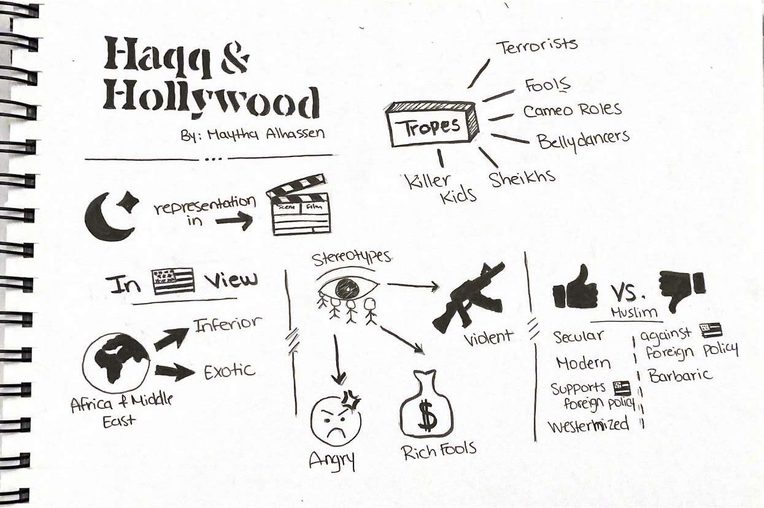 Haqq &
Hollywood
By: Maytha Alhassen
Tropes
Terrorists
Fools
Cameo Roles
Bellydancers
Sheikhs
Killer
Kids
representation
in
Scene Film
In View
Inferior
Exotic
Africa & Middle
East
Stereotypes
Violent
Angry
$
Rich Fools
VS.
Muslim
Secular
Modern
Supports
foreign policy
Westernized
against
foreign policy
Barbaric